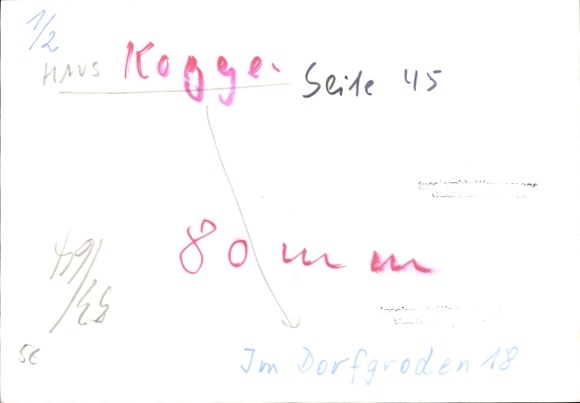 1/2
HAUS Kogge. Seite 45
80 mm
5E
Im Dorfgroden 18